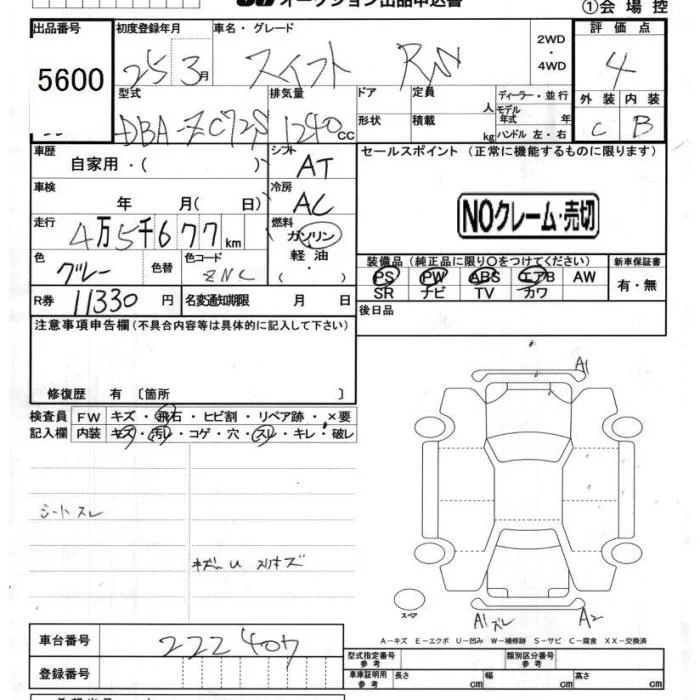 オークション出品申込書
①会場控
出品番号 初度登録年月 車名・グレード 評価点
5600 25 3月 スイフト 2WD・4WD 4
型式 排気量 ドア 定員 ディーラー・並行 外装 内装
DBA-ZC72S 1240cc 形状 積載 人 モデル年式 年 kg ハンドル 左・右 C B
車歴 シフト セールスポイント(正常に機能するものに限ります)
自家用・( ) AT
車検 冷房
年 月( 日) AC
NOクレーム・売切
走行 燃料
4万5千677km ガソリン
軽油
・
( )
色 色替 色コード
グレー ZNC
装備品(純正品に限り○をつけてください) 新車保証書
PS PW ABS エアB AW 有・無
SR ナビ TV カワ
R券 11330円 名変通知期限 月 日
後日品
注意事項申告欄(不具合内容等は具体的に記入して下さい)
修復歴 有〔箇所 〕
検査員 FW キズ・飛石・ヒビ割・リペア跡・×要
記入欄 内装 キズ・汚レ・コゲ・穴・スレ・キレ・破レ
A1
シートスレ
キズ
スペア
A1 ズレ A2
A−キズ E−エクボ U−凹み W−補修跡 S−サビ C−腐食 XX−交換済
車台番号 222407
型式指定番号 参考 類別区分番号 参考
登録番号
車庫証明用 参考 長さ cm 幅 cm 高さ cm